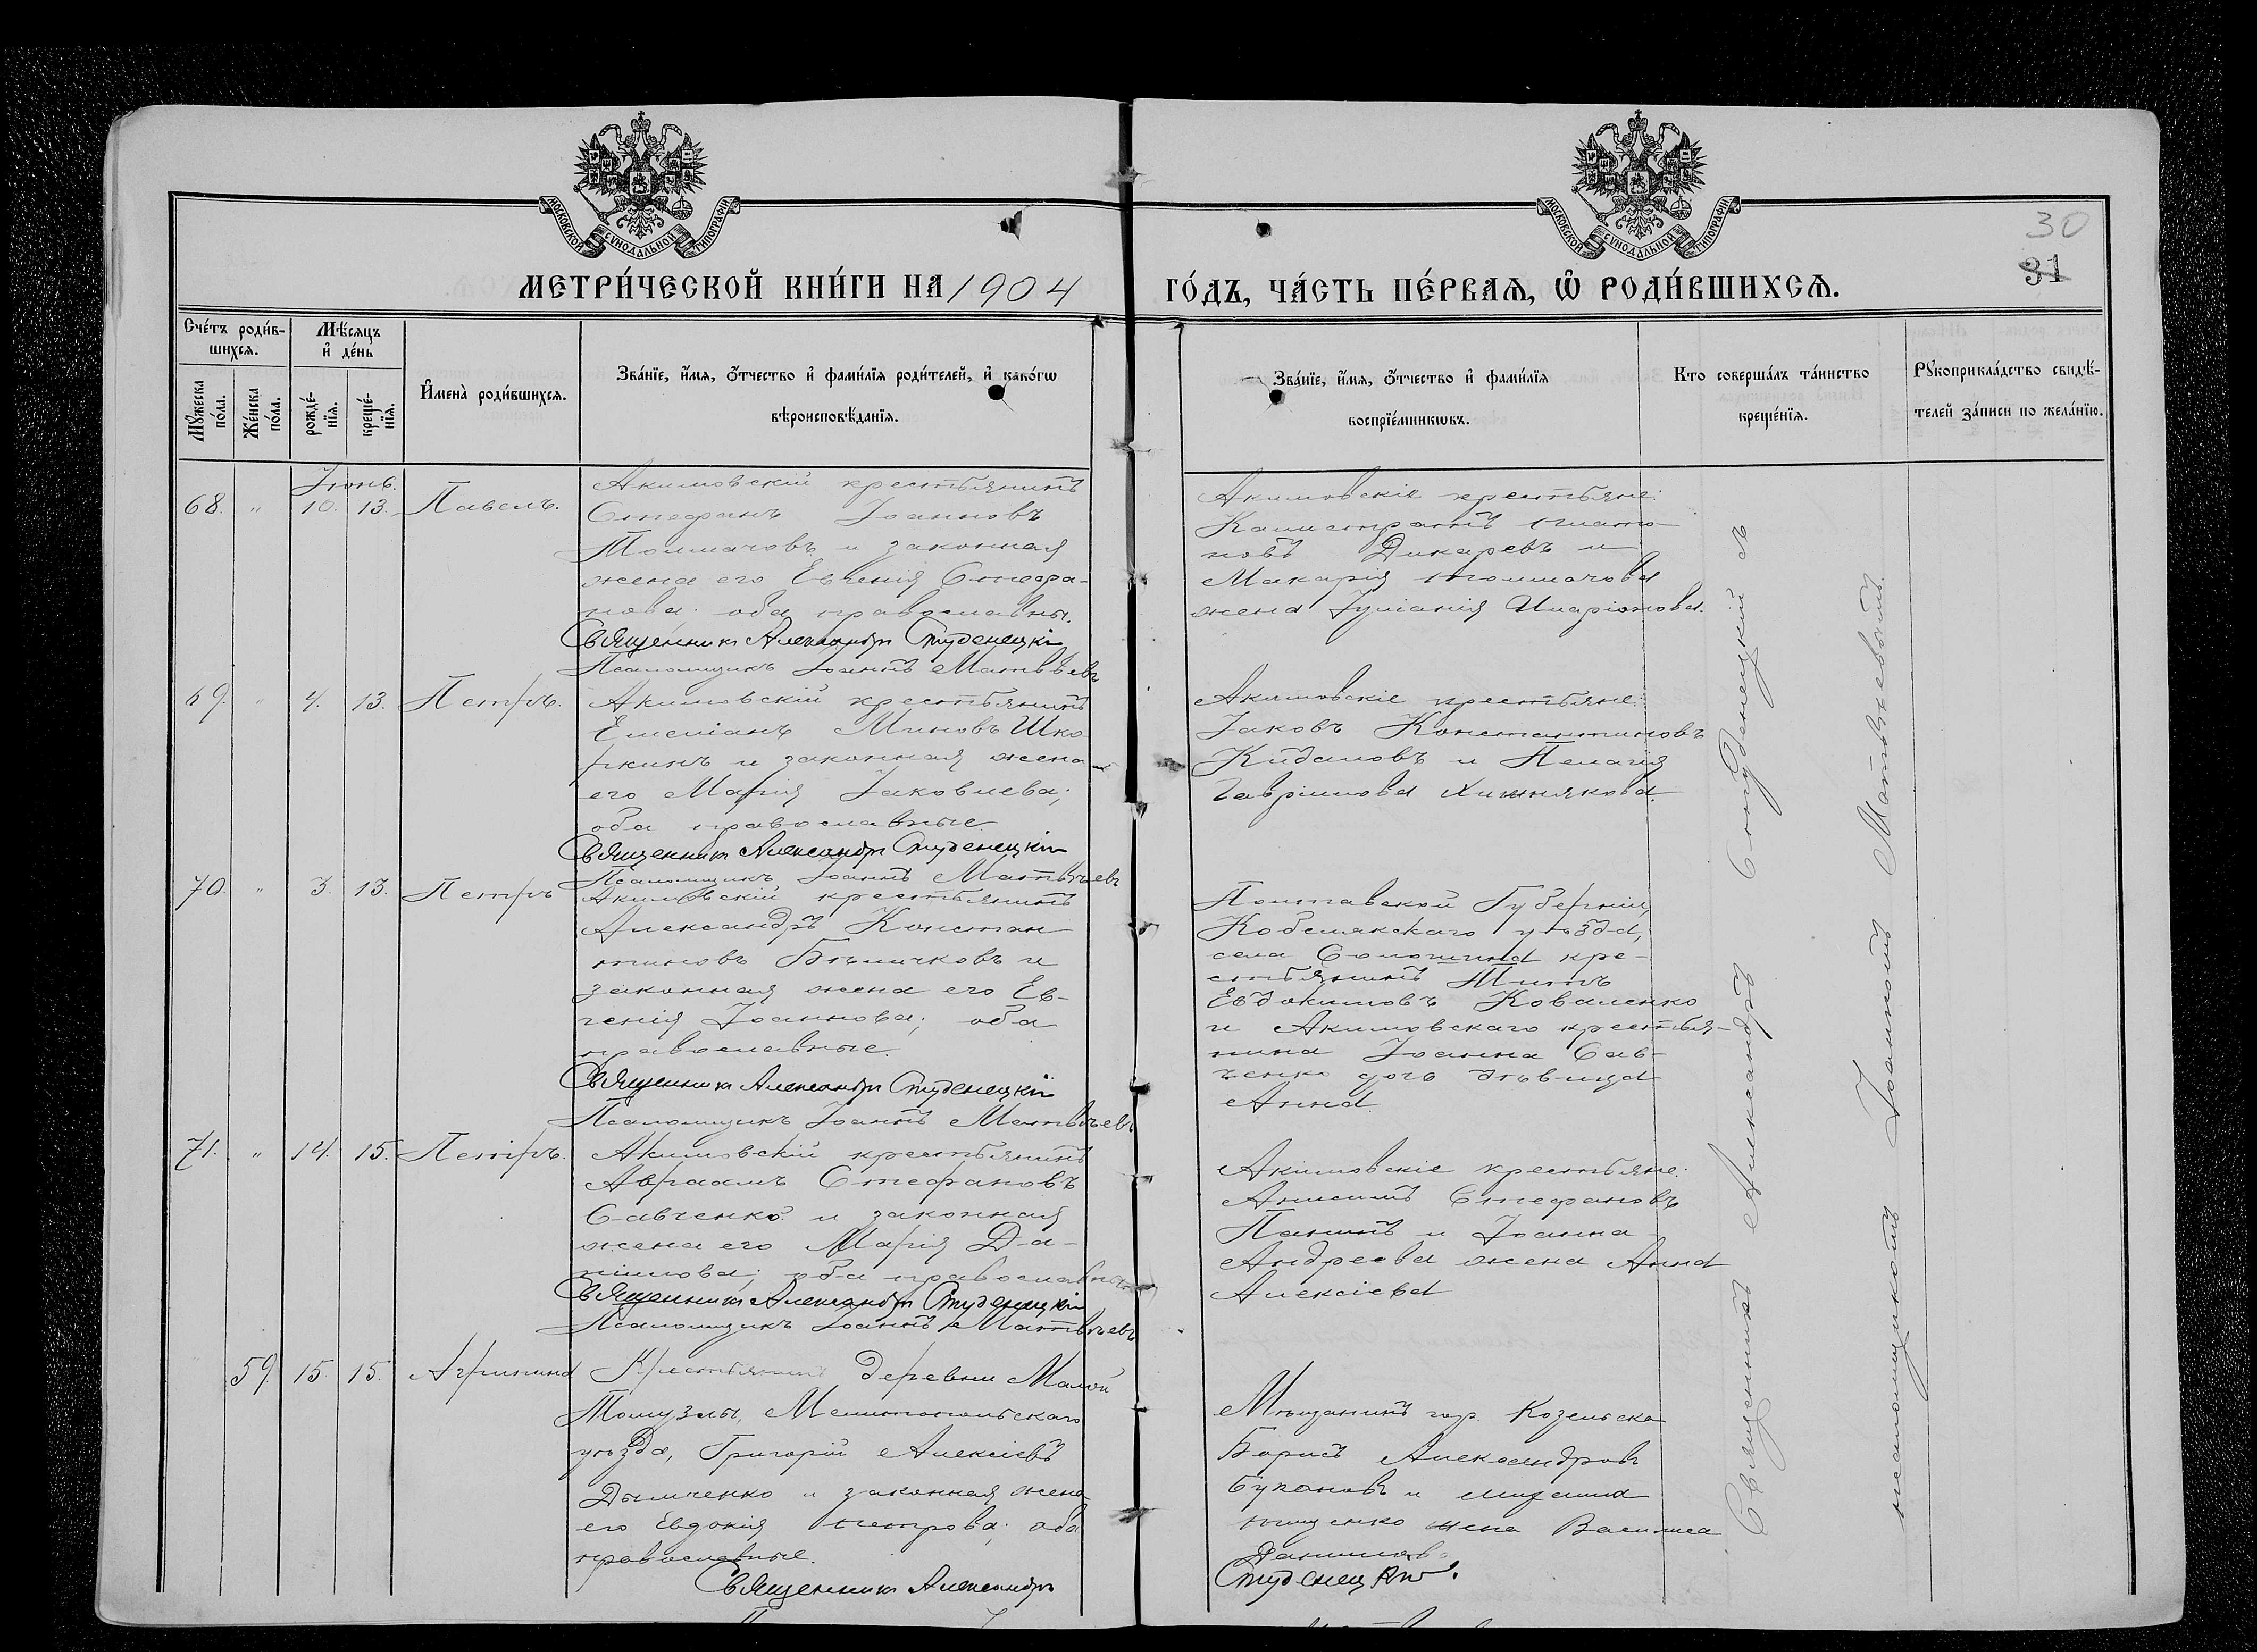 МОСКОВСКОЙ СУНОДАЛЬНОЙ ТИПОГРАФІИ
МОСКОВСКОЙ СУНОДАЛЬНОЙ ТИПОГРАФІИ
30
31
МЕТРИ́ЧЕСКОЙ КНИ́ГИ НА 1904
ГО́ДЪ, ЧА́СТЬ ПЕ́РВАѦ, Ѽ РОДИ́ВШИХСѦ.
Сче́тъ роди́в-
шихсѧ.
Мѣ́сяцъ
и҆ де́нь
Мꙋ́жеска
по́ла.
Же́нска
по́ла.
рожде́-
нїѧ.
креще́-
нїѧ.
И҆мена̀ роди́вшихсѧ.
Зва́нїе, и҆́мѧ, ѻ҆́тчество и҆ фами́лїѧ роди́телей, и҆ како́гѡ
вѣроисповѣ́данїѧ.
Зва́нїе, и҆́мѧ, ѻ҆́тчество и҆ фами́лїѧ
воспрїе́мникѡвъ.
Кто соверша́лъ та́инство
креще́нїѧ.
Рꙋкоприкла́дство свидѣ́-
телей за́писи по жела́нїю.
Іюнь.
68. " 10. 13. Павелъ.
Акимовскій крестьянинъ
Стефанъ Іоанновъ
Толмачовъ и законная
жена его Евгенія Стефа-
нова; оба православны.
Священникъ Александръ Студенецкій
Псаломщикъ Іоаннъ Матвѣевъ
Акимовскіе крестьяне:
Калистратъ Плато-
новъ Дикаревъ и
Макарія Толмачова
жена Іуліанія Иларіонова.
69. " 4. 13. Петръ.
Акимовскій крестьянинъ
Емеліанъ Миновъ Шко-
ркинъ и законная жена
его Марія Іаковлева;
оба православные
Священникъ Александръ Студенецкій
Псаломщикъ Іоаннъ Матвѣевъ
Акимовскіе крестьяне:
Іаковъ Константиновъ
Кидаловъ и Пелагія
Гавріилова Хижнякова.
70. " 3. 13. Петръ
Акимовскій крестьянинъ
Александръ Констан-
тиновъ Бѣличковъ и
законная жена его Ев-
генія Іоаннова; оба
православные.
Священникъ Александръ Студенецкій
Псаломщикъ Іоаннъ Матвѣевъ
Полтавской Губерніи,
Кобелякскаго уѣзда,
села кре-
стьянинъ Титъ
Евдокимовъ Коваленко
и Акимовскаго крестья-
нина Іоанна Сав-
ченко дочь дѣвица
Анна.
71. " 14. 15. Петръ.
Акимовскій крестьянинъ
Авраамъ Стефановъ
Савченко и законная
жена его Марія Да-
ніилова; оба православные
Священникъ Александръ Студенецкій
Псаломщикъ Іоаннъ Матвѣевъ
Акимовскіе крестьяне:
Анисимъ Стефановъ
Панинъ и Іоанна
Андреева жена Анна
Алексіева
59. 15. 15. Агрипина
Крестьянинъ деревни Малой
Мелитопольскаго
уѣзда, Григорій Алексіевъ
Дымченко и законная жена
его Евдокія Петрова; оба
православные.
Священникъ Александръ
Мѣщанинъ гор. Козельска
Борисъ Александровъ
и
жена Василиса
Данилова
Студенецкій.
Священникъ Александръ Студенецкій съ
псаломщикомъ Іоанномъ Матвѣевымъ.